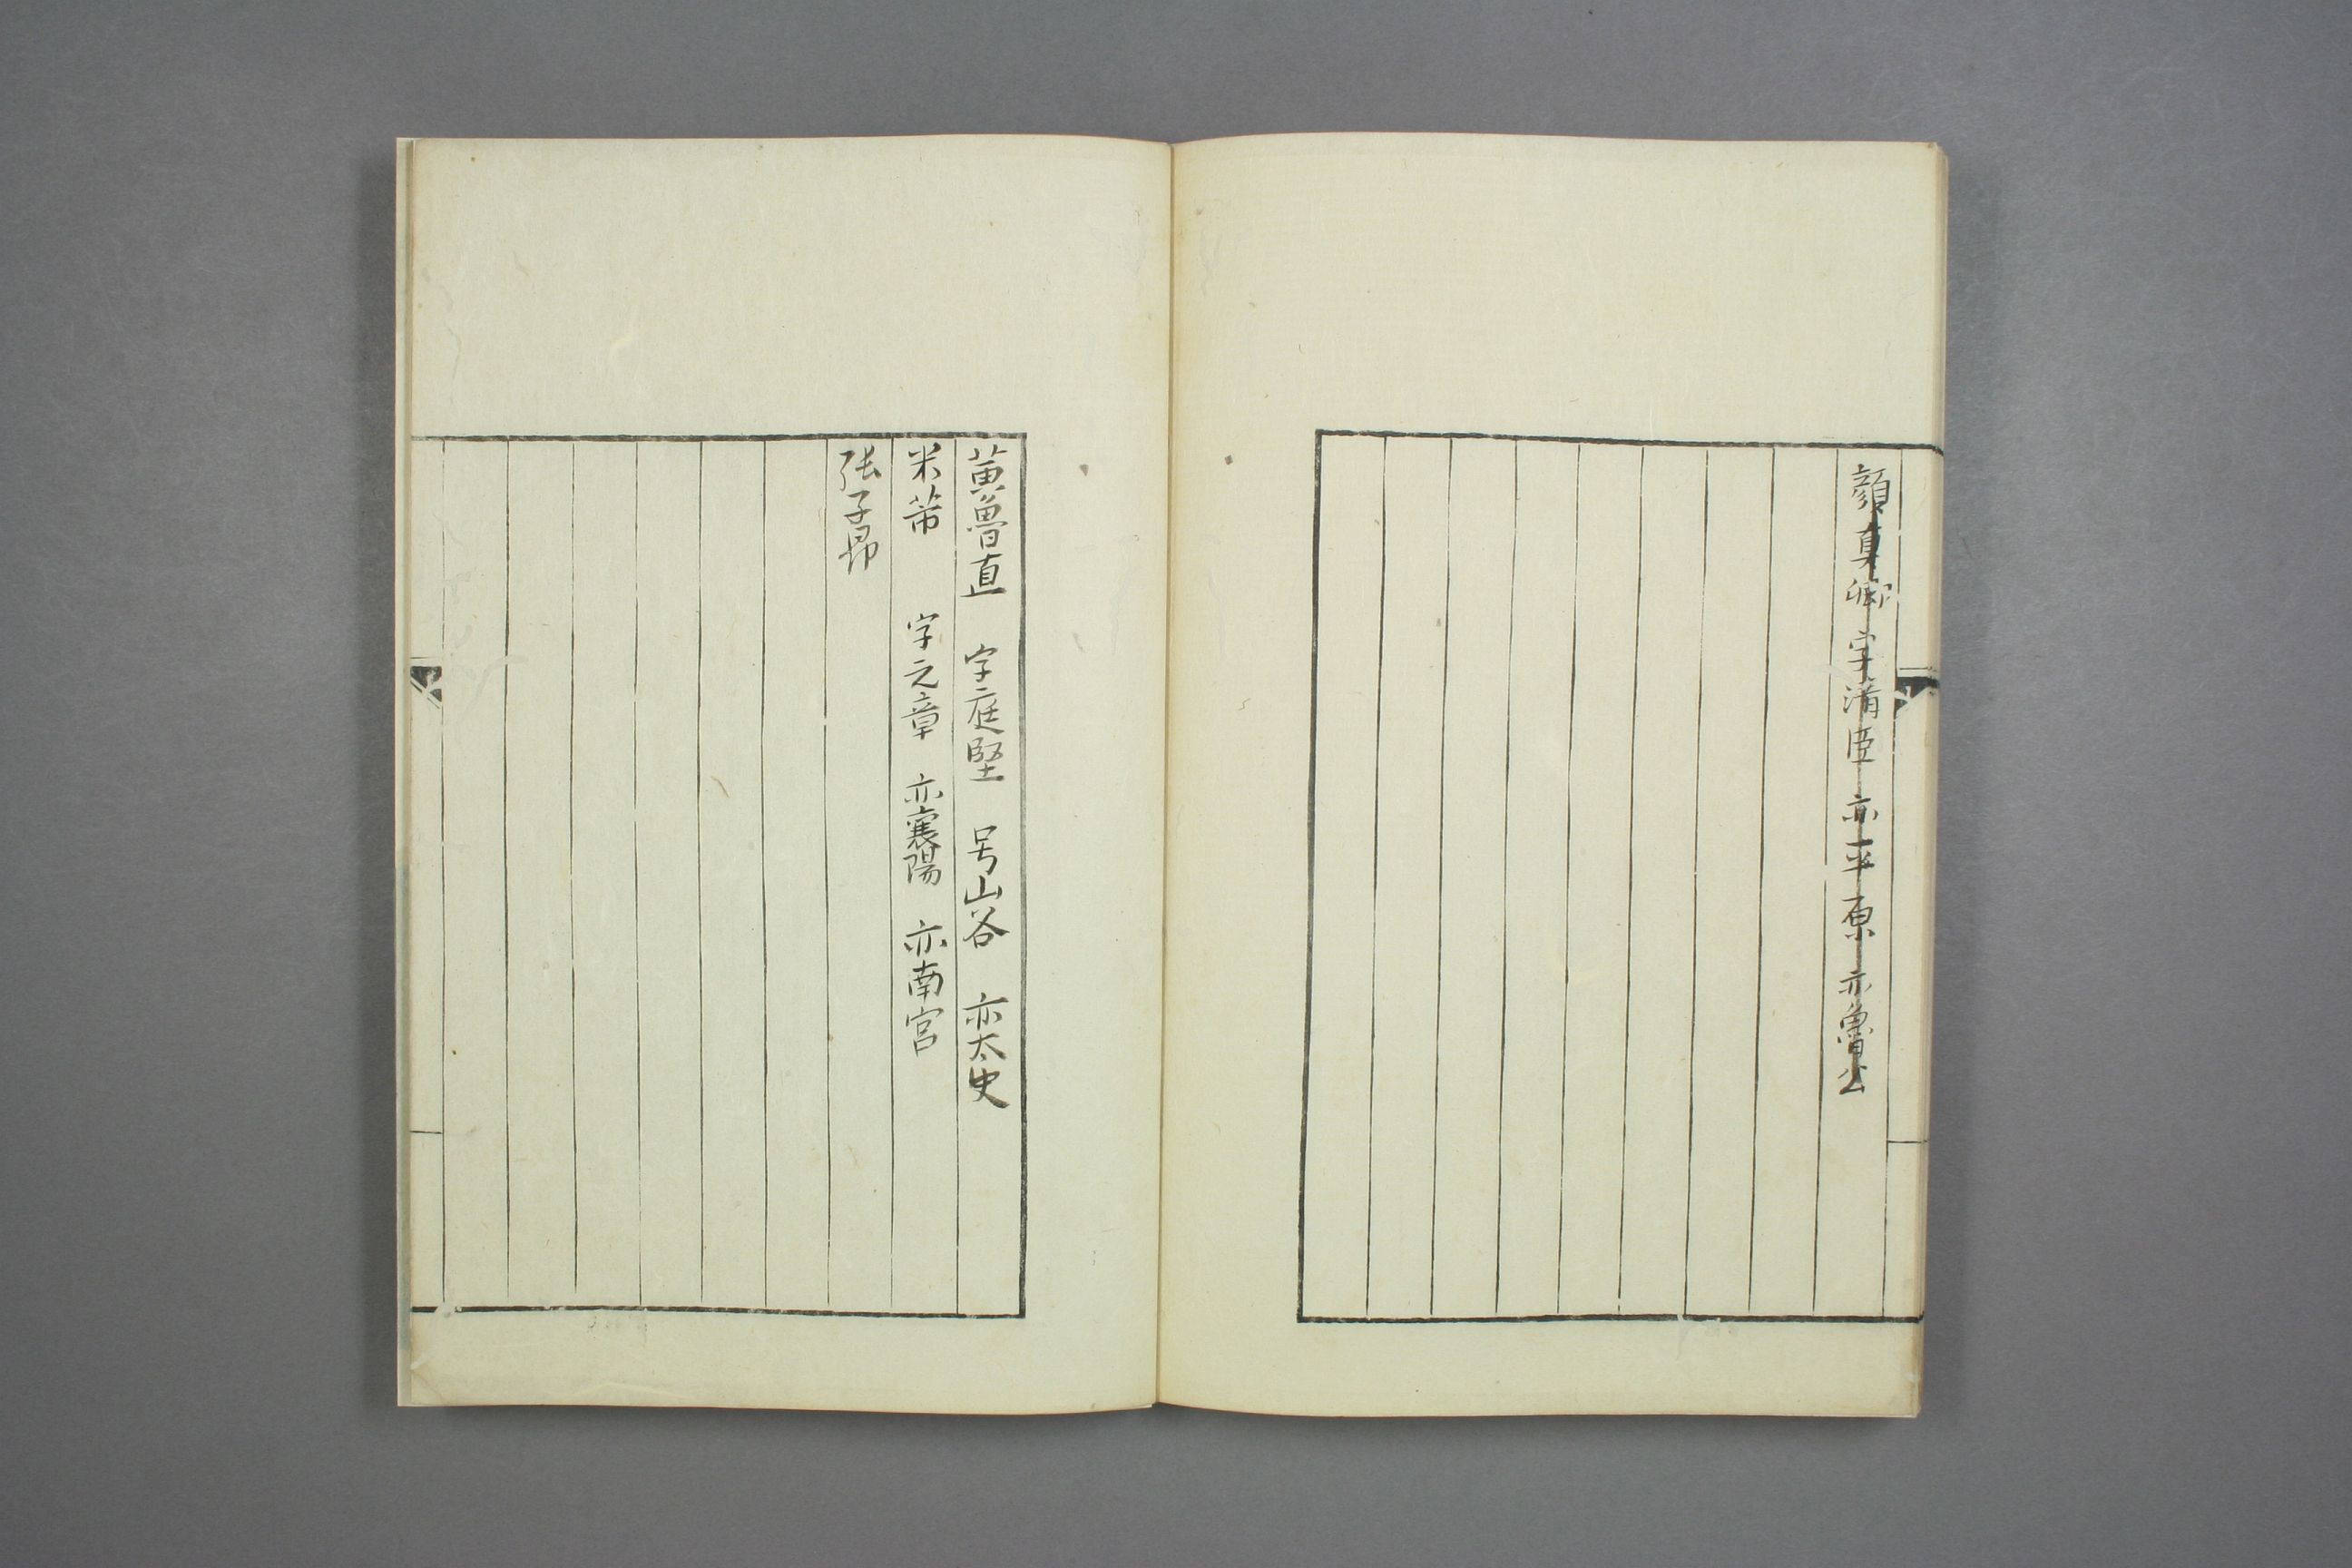 顔真卿 字清臣 亦平原 亦魯公
黄魯直 字庭堅 号山谷 亦太史
米芾 字元章 亦襄陽 亦南宮
張子昂